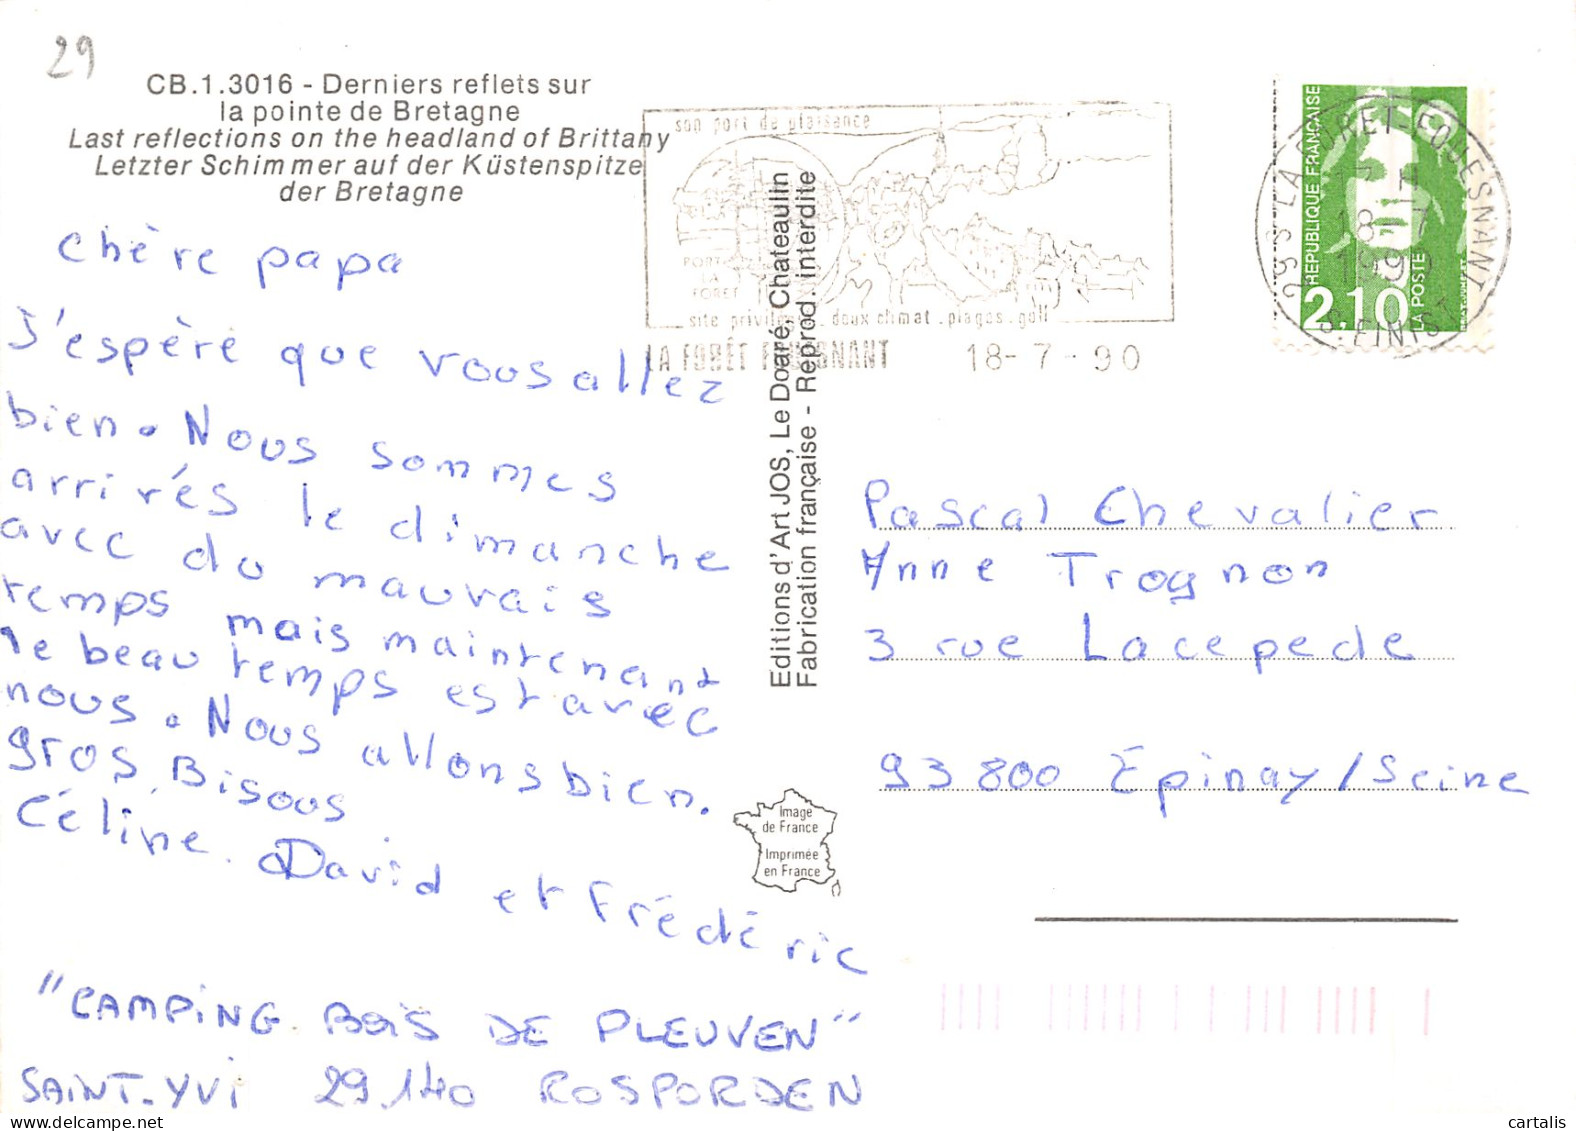 29
CB.1.3016 - Derniers reflets sur
la pointe de Bretagne
Last reflections on the headland of Brittany
Letzter Schimmer auf der Küstenspitze
der Bretagne
chère papa
J'espère que vous allez
bien. Nous sommes
arrivés le dimanche
avec du mauvais
temps mais maintenant
le beau temps est avec
nous. Nous allons bien.
gros Bisous
Céline. David et Frédéric
"CAMPiNG BOiS DE PLEUVEN"
SAiNT-YVi 29.140 ROSPORDEN
son port de plaisance
PORT
LA
FORET
site privilégié. doux climat. plages. golf
LA FORÊT FOUESNANT 18-7-90
Editions d'Art JOS, Le Doaré, Chateaulin
Fabrication française - Reprod. interdite
REPUBLIQUE FRANÇAISE
2,10
LA POSTE
29 S LA FORET-FOUESNANT
18-7
1990
S. FINIST.
Pascal Chevalier
Anne Trognon
3 rue Lacepede
93 800 Épinay/Seine
Image
de France
Imprimée
en France
cartalis